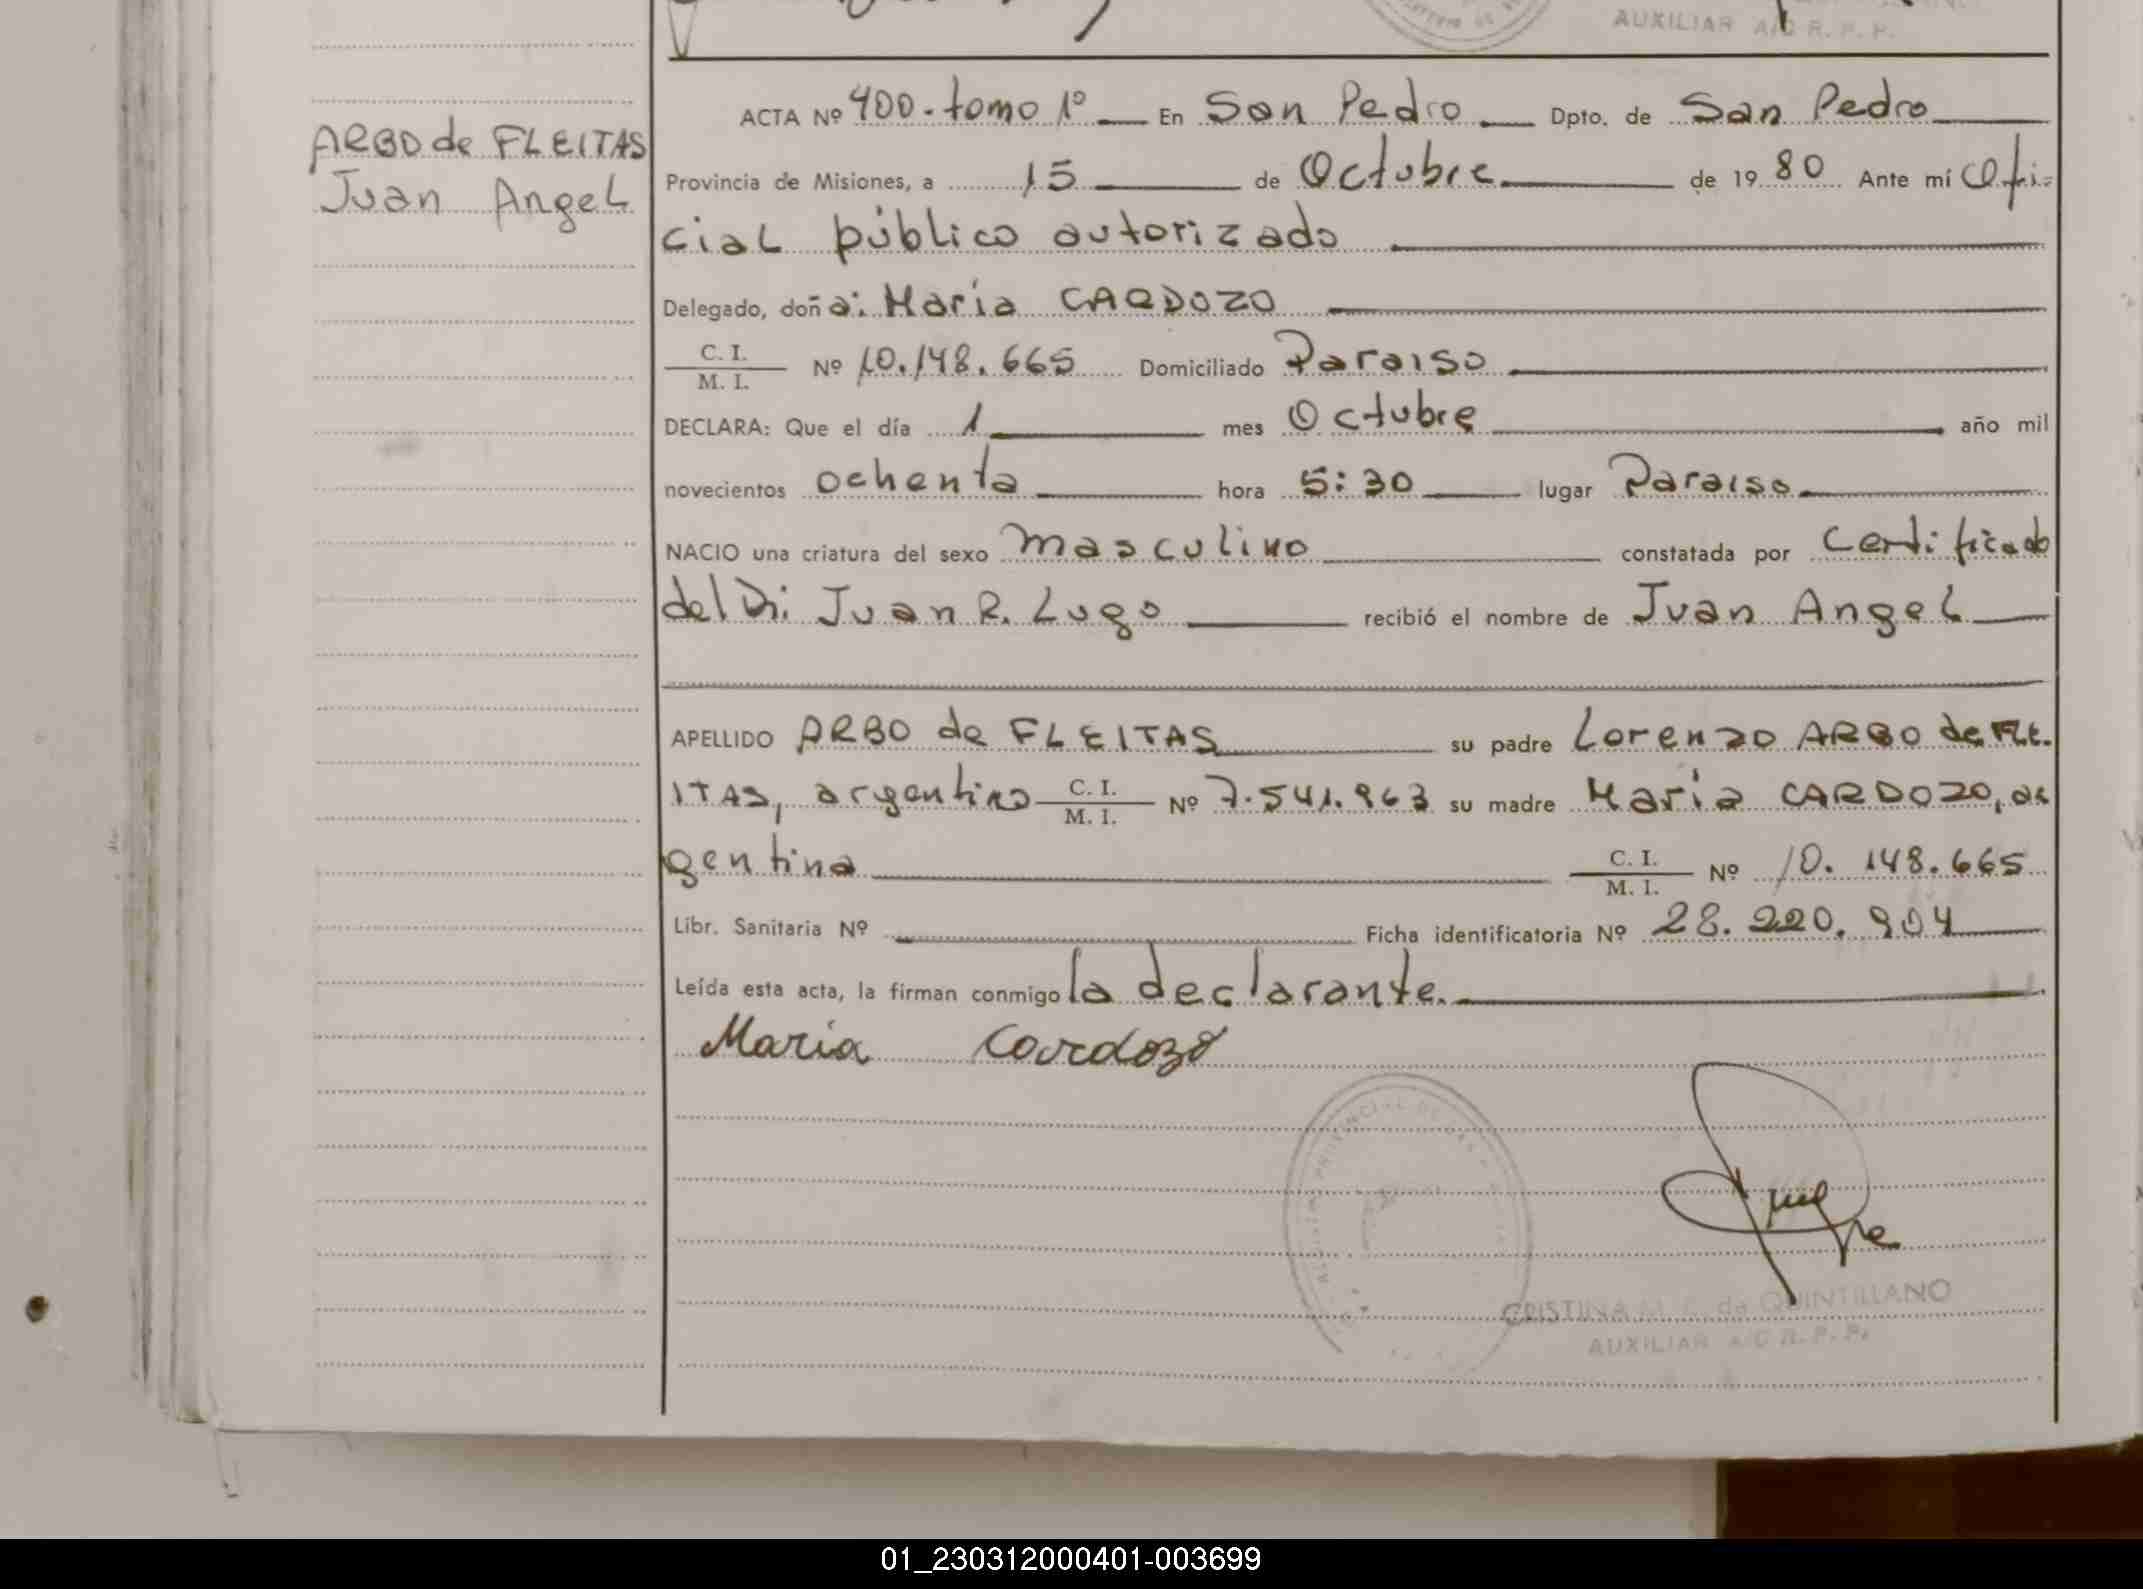 AUXILIAR A/C R. P. P.
ARBO de FLEITAS
Juan Angel
ACTA Nº 400 - tomo 1º En San Pedro Dpto. de San Pedro
Provincia de Misiones, a 15 de Octubre de 1980 Ante mí Ofi-
cial público autorizado
Delegado, doña: María CARDOZO
C. I. / M. I. Nº 10.148.665 Domiciliado Paraiso
DECLARA: Que el día 1 mes Octubre año mil
novecientos ochenta hora 5:30 lugar Paraiso
NACIO una criatura del sexo masculino constatada por Certificado
del Dr. Juan R. Lugo recibió el nombre de Juan Angel
APELLIDO ARBO de FLEITAS su padre Lorenzo ARBO de FLE-
ITAS, argentino C. I. / M. I. Nº 7.541.963 su madre María CARDOZO, ar
gentina C. I. / M. I. Nº 10.148.665
Libr. Sanitaria Nº Ficha identificatoria Nº 28.220.904
Leída esta acta, la firman conmigo la declarante.
Maria Cardozo
CRISTINA M. de QUINTILLANO
AUXILIAR A/C R. P. P.
01_230312000401-003699